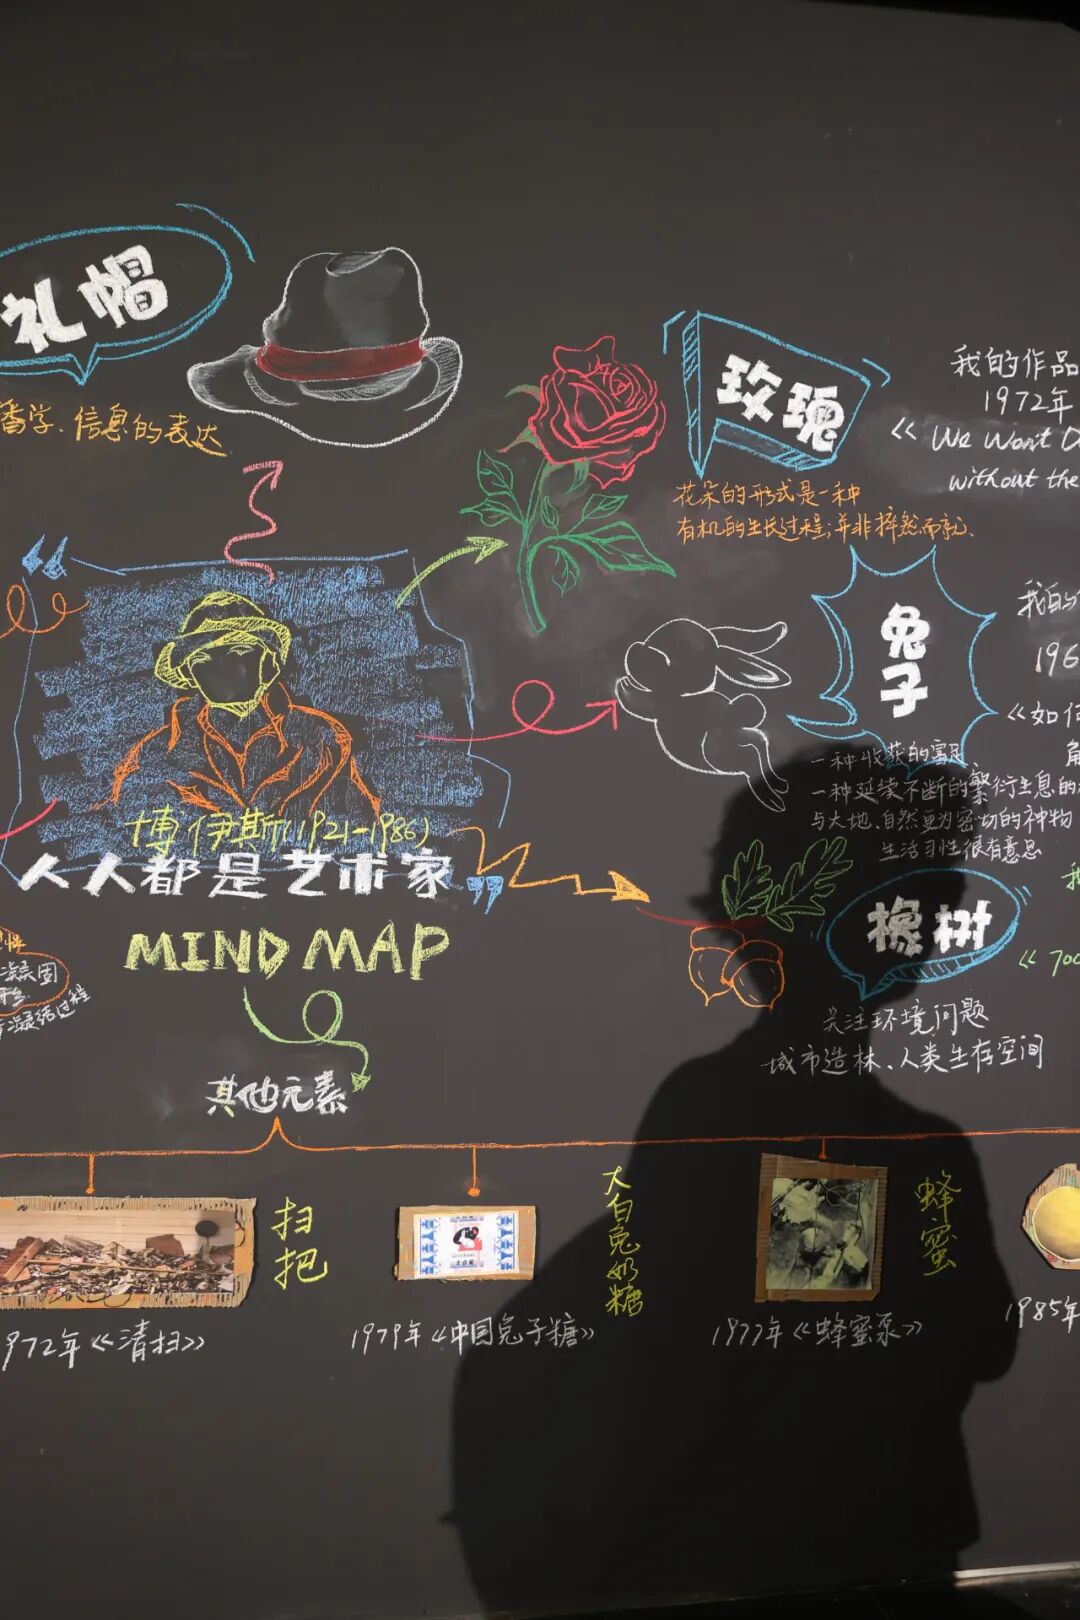 礼帽
信息的表达
玫瑰
花朵的形式是一种
有机的生长过程；并非摔然而就.
我的作品
1972年
《 We Won't D
without the
兔子
一种收获的富足
一种延续不断的繁衍生息的
与大地、自然更为密切的神物
生活习性很有意思
我的
196
《如何
博伊斯(1921-1986)
人人都是艺术家
MIND MAP
橡树
《 700
关注环境问题
城市造林、人类生存空间
凝结过程
其他元素
扫把
972年《清扫》
大白兔奶糖
1979年《中国兔子糖》
蜂蜜
1977年《蜂蜜泵》
1985年